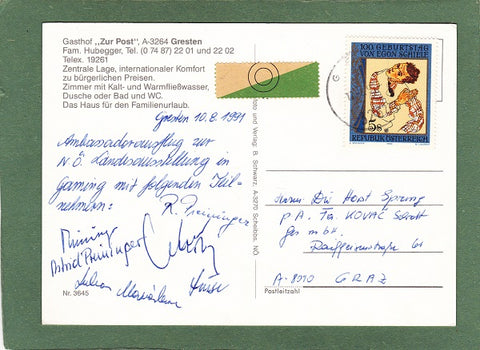 Gasthof „Zur Post", A-3264 Gresten
Fam. Hubegger, Tel. (0 74 87) 22 01 und 22 02
Telex. 19261
Zentrale Lage, internationaler Komfort
zu bürgerlichen Preisen.
Zimmer mit Kalt- und Warmfließwasser,
Dusche oder Bad und WC.
Das Haus für den Familienurlaub.
Gresten 10.8.1991
Ambassadorausflug zur
N.Ö. Landesausstellung in
Gaming mit folgenden Teil-
nehmern:
R. Preininger
Astrid Preininger
Nr. 3645
und Verlag: B. Schwarz, A-3270 Scheibbs, NÖ
100. GEBURTSTAG
VON EGON SCHIELE
5s
REPUBLIK ÖSTERREICH
Herrn Horst
p.A. Fa. KOVAC
Ges mbH.
A-8010 GRAZ
Postleitzahl